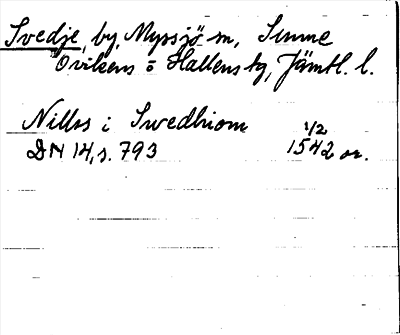 Svedje, by, Myssjö sn, Sunne
Ovikens o Hallens tg, Jämtl. l.
Nillss i Swedhiom 1/2
DN 14, s. 793 1542 or.